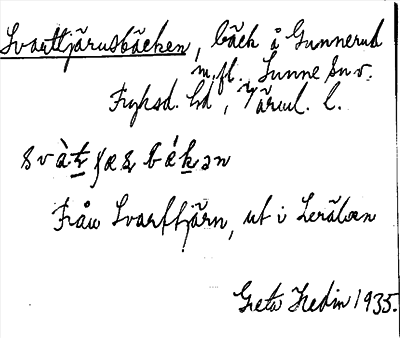 Svarttjärnsbäcken, bäck å Gunnerud
m.fl. Sunne sn v.
Fryksd. hd, Värml. l.
svàt̠ ʃæꞩ bák̠ən
Från Svarttjärn, ut i Lerälven
Greta Hedin 1935.